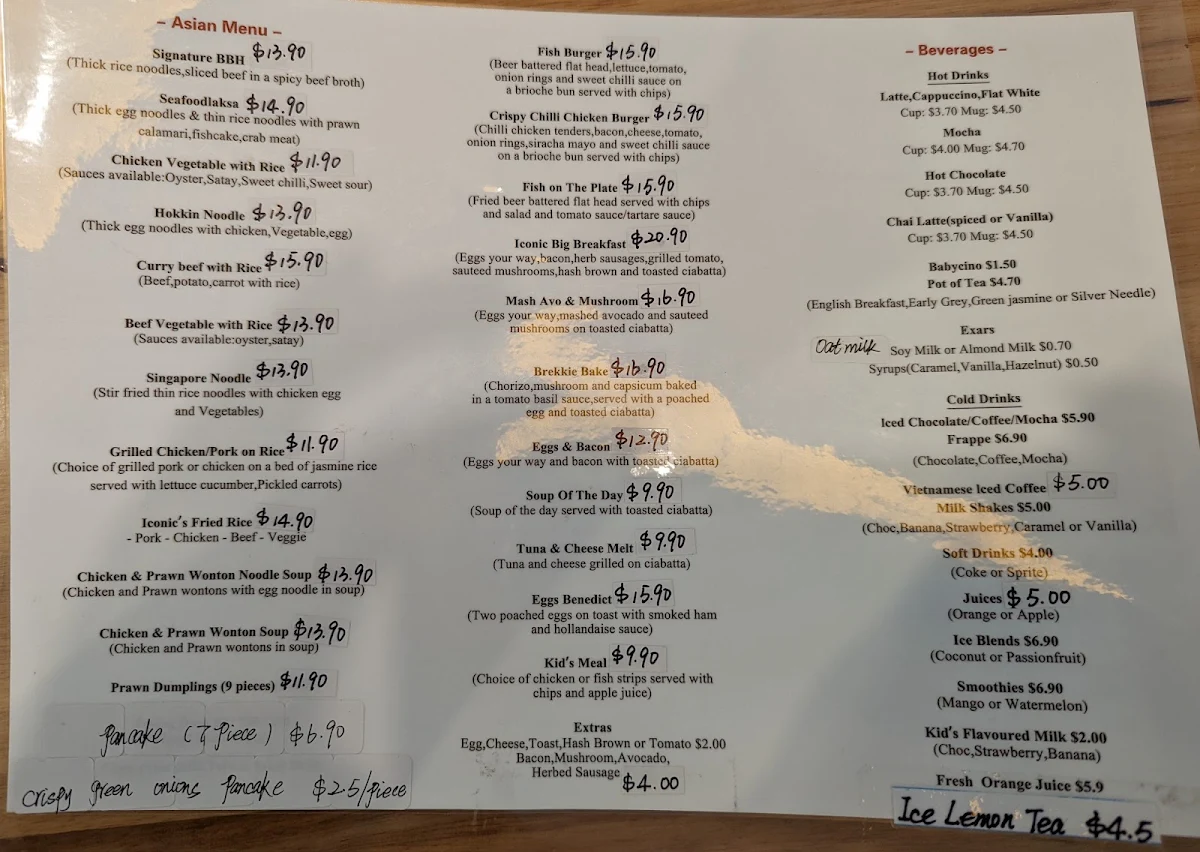 – Asian Menu –
Signature BBH $13.90
(Thick rice noodles,sliced beef in a spicy beef broth)
Seafoodlaksa $14.90
(Thick egg noodles & thin rice noodles with prawn
calamari,fishcake,crab meat)
Chicken Vegetable with Rice $11.90
(Sauces available:Oyster,Satay,Sweet chilli,Sweet sour)
Hokkin Noodle $13.90
(Thick egg noodles with chicken,Vegetable,egg)
Curry beef with Rice $15.90
(Beef,potato,carrot with rice)
Beef Vegetable with Rice $13.90
(Sauces available:oyster,satay)
Singapore Noodle $13.90
(Stir fried thin rice noodles with chicken egg
and Vegetables)
Grilled Chicken/Pork on Rice $11.90
(Choice of grilled pork or chicken on a bed of jasmine rice
served with lettuce cucumber,Pickled carrots)
Iconic's Fried Rice $14.90
- Pork - Chicken - Beef - Veggie
Chicken & Prawn Wonton Noodle Soup $13.90
(Chicken and Prawn wontons with egg noodle in soup)
Chicken & Prawn Wonton Soup $13.90
(Chicken and Prawn wontons in soup)
Prawn Dumplings (9 pieces) $11.90
Pancake ( piece) $6.90
Crispy green onions Pancake $2.5/piece
Fish Burger $15.90
(Beer battered flat head,lettuce,tomato,
onion rings and sweet chilli sauce on
a brioche bun served with chips)
Crispy Chilli Chicken Burger $15.90
(Chilli chicken tenders,bacon,cheese,tomato,
onion rings,siracha mayo and sweet chilli sauce
on a brioche bun served with chips)
Fish on The Plate $15.90
(Fried beer battered flat head served with chips
and salad and tomato sauce/tartare sauce)
Iconic Big Breakfast $20.90
(Eggs your way,bacon,herb sausages,grilled tomato,
sauteed mushrooms,hash brown and toasted ciabatta)
Mash Avo & Mushroom $16.90
(Eggs your way,mashed avocado and sauteed
mushrooms on toasted ciabatta)
Brekkie Bake $16.90
(Chorizo,mushroom and capsicum baked
in a tomato basil sauce,served with a poached
egg and toasted ciabatta)
Eggs & Bacon $12.90
(Eggs your way and bacon with toasted ciabatta)
Soup Of The Day $9.90
(Soup of the day served with toasted ciabatta)
Tuna & Cheese Melt $9.90
(Tuna and cheese grilled on ciabatta)
Eggs Benedict $15.90
(Two poached eggs on toast with smoked ham
and hollandaise sauce)
Kid's Meal $9.90
(Choice of chicken or fish strips served with
chips and apple juice)
Extras
Egg,Cheese,Toast,Hash Brown or Tomato $2.00
Bacon,Mushroom,Avocado,
Herbed Sausage $4.00
– Beverages –
Hot Drinks
Latte,Cappuccino,Flat White
Cup: $3.70 Mug: $4.50
Mocha
Cup: $4.00 Mug: $4.70
Hot Chocolate
Cup: $3.70 Mug: $4.50
Chai Latte(spiced or Vanilla)
Cup: $3.70 Mug: $4.50
Babycino $1.50
Pot of Tea $4.70
(English Breakfast,Early Grey,Green jasmine or Silver Needle)
Exars
Oat milk Soy Milk or Almond Milk $0.70
Syrups(Caramel,Vanilla,Hazelnut) $0.50
Cold Drinks
Iced Chocolate/Coffee/Mocha $5.90
Frappe $6.90
(Chocolate,Coffee,Mocha)
Vietnamese Iced Coffee $5.00
Milk Shakes $5.00
(Choc,Banana,Strawberry,Caramel or Vanilla)
Soft Drinks $4.00
(Coke or Sprite)
Juices $5.00
(Orange or Apple)
Ice Blends $6.90
(Coconut or Passionfruit)
Smoothies $6.90
(Mango or Watermelon)
Kid's Flavoured Milk $2.00
(Choc,Strawberry,Banana)
Fresh Orange Juice $5.9
Ice Lemon Tea $4.5